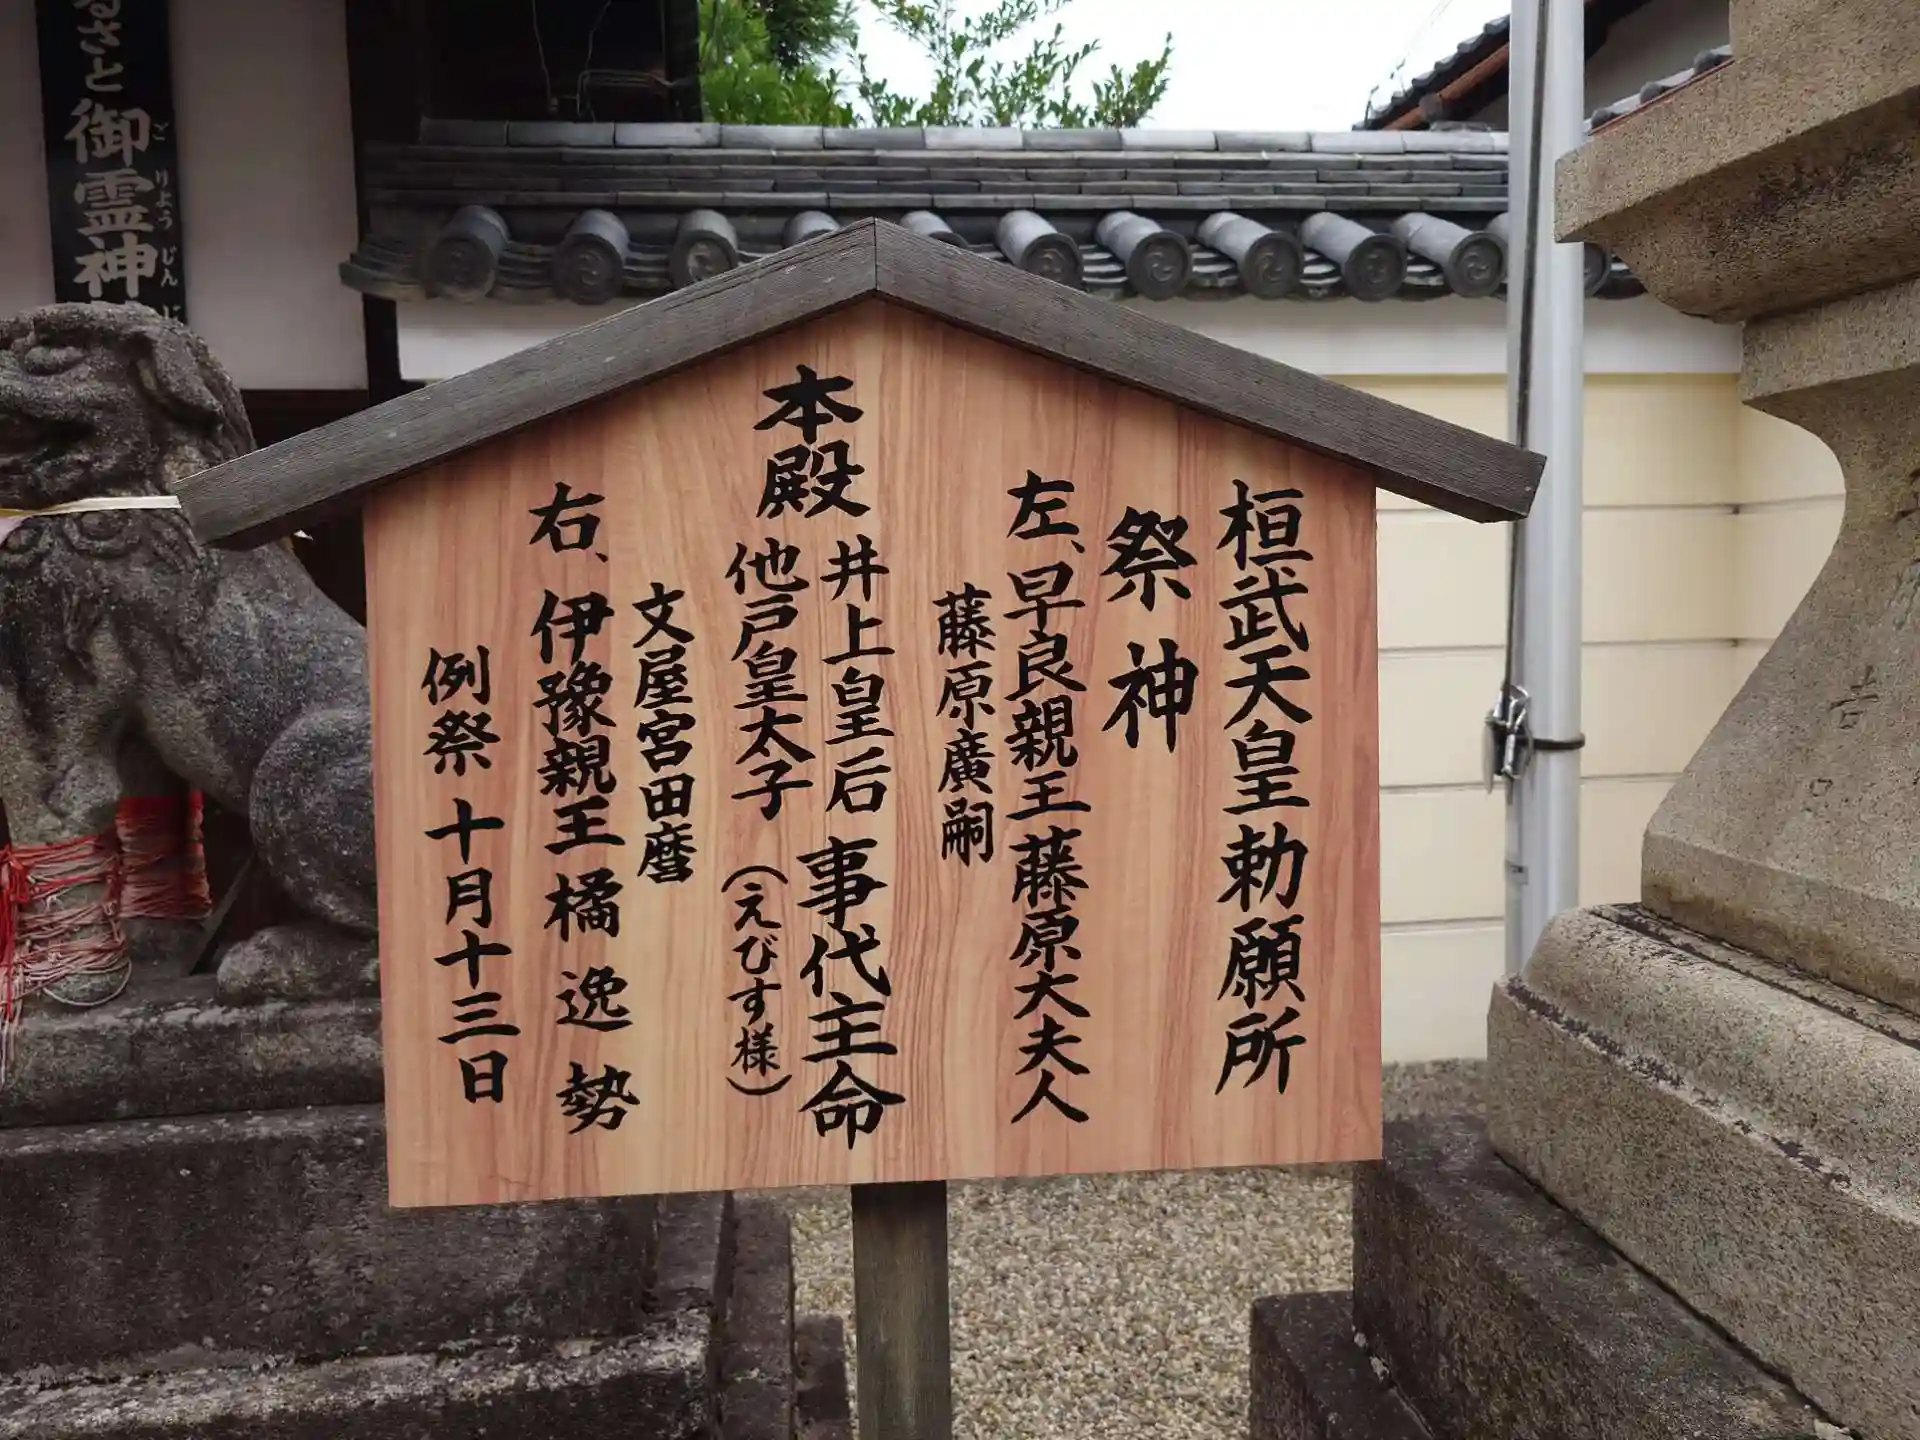 桓武天皇勅願所
祭神
左、早良親王藤原大夫人
藤原廣嗣
本殿 井上皇后 事代主命
他戸皇太子(えびす様)
文屋宮田麿
右、伊豫親王 橘逸勢
例祭 十月十三日
るさと御霊神
ごりょうじんじ